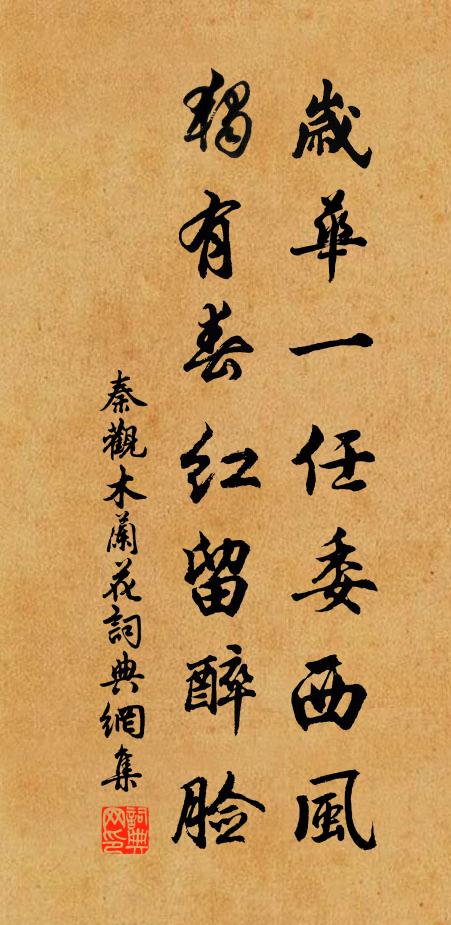 歲華一任委西風
獨有春紅留醉脸
秦觀木蘭花詞典網集
詞典网印